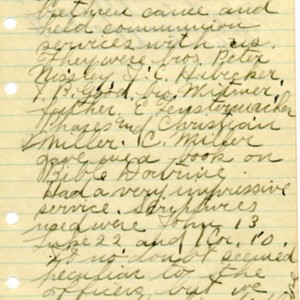 brethren came and
held communion
services with us.
They were bros. Peter
Nissley J. C. Habecker
I. B. Good, bro Witmer,
father, E Fenstermacher
and Christian
Miller. C. Miller
gave me a book on
Bible Doctrine.
Had a very impressive
service. Scriptures
used were John 13
Luke 22 and 1 Cor. 10.
To us no doubt seemed
peculiar to the
officers, but we